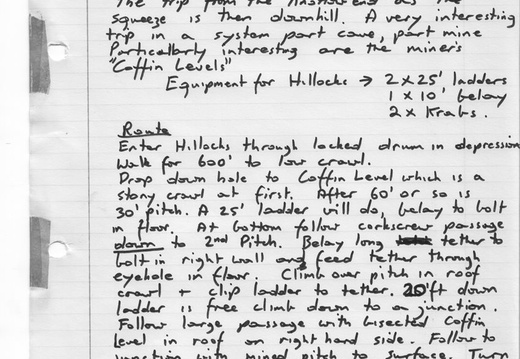 The trip from the
squeeze is then downhill. A very interesting
trip in a system part cave, part mine
Particularly interesting are the miner's
"Coffin Levels"
Equipment for Hillocks → 2 x 25' ladders
1 x 10' belay
2 x Krabs.
Route
Enter Hillocks through locked drum in depression
Walk for 600' to low crawl.
Drop down hole to Coffin Level which is a
stony crawl at first. After 60' or so is
30' pitch. A 25' ladder will do, belay to bolt
in floor. At bottom follow corkscrew passage
down to 2nd Pitch. Belay long tether to
bolt in right wall and feed tether through
eyehole in floor. Climb over pitch in roof
crawl + clip ladder to tether. 20'ft down
ladder is free climb down to a junction.
Follow large passage with bisected Coffin
level in roof on right hand side. Follow to
junction with mined pitch to surface. Turn